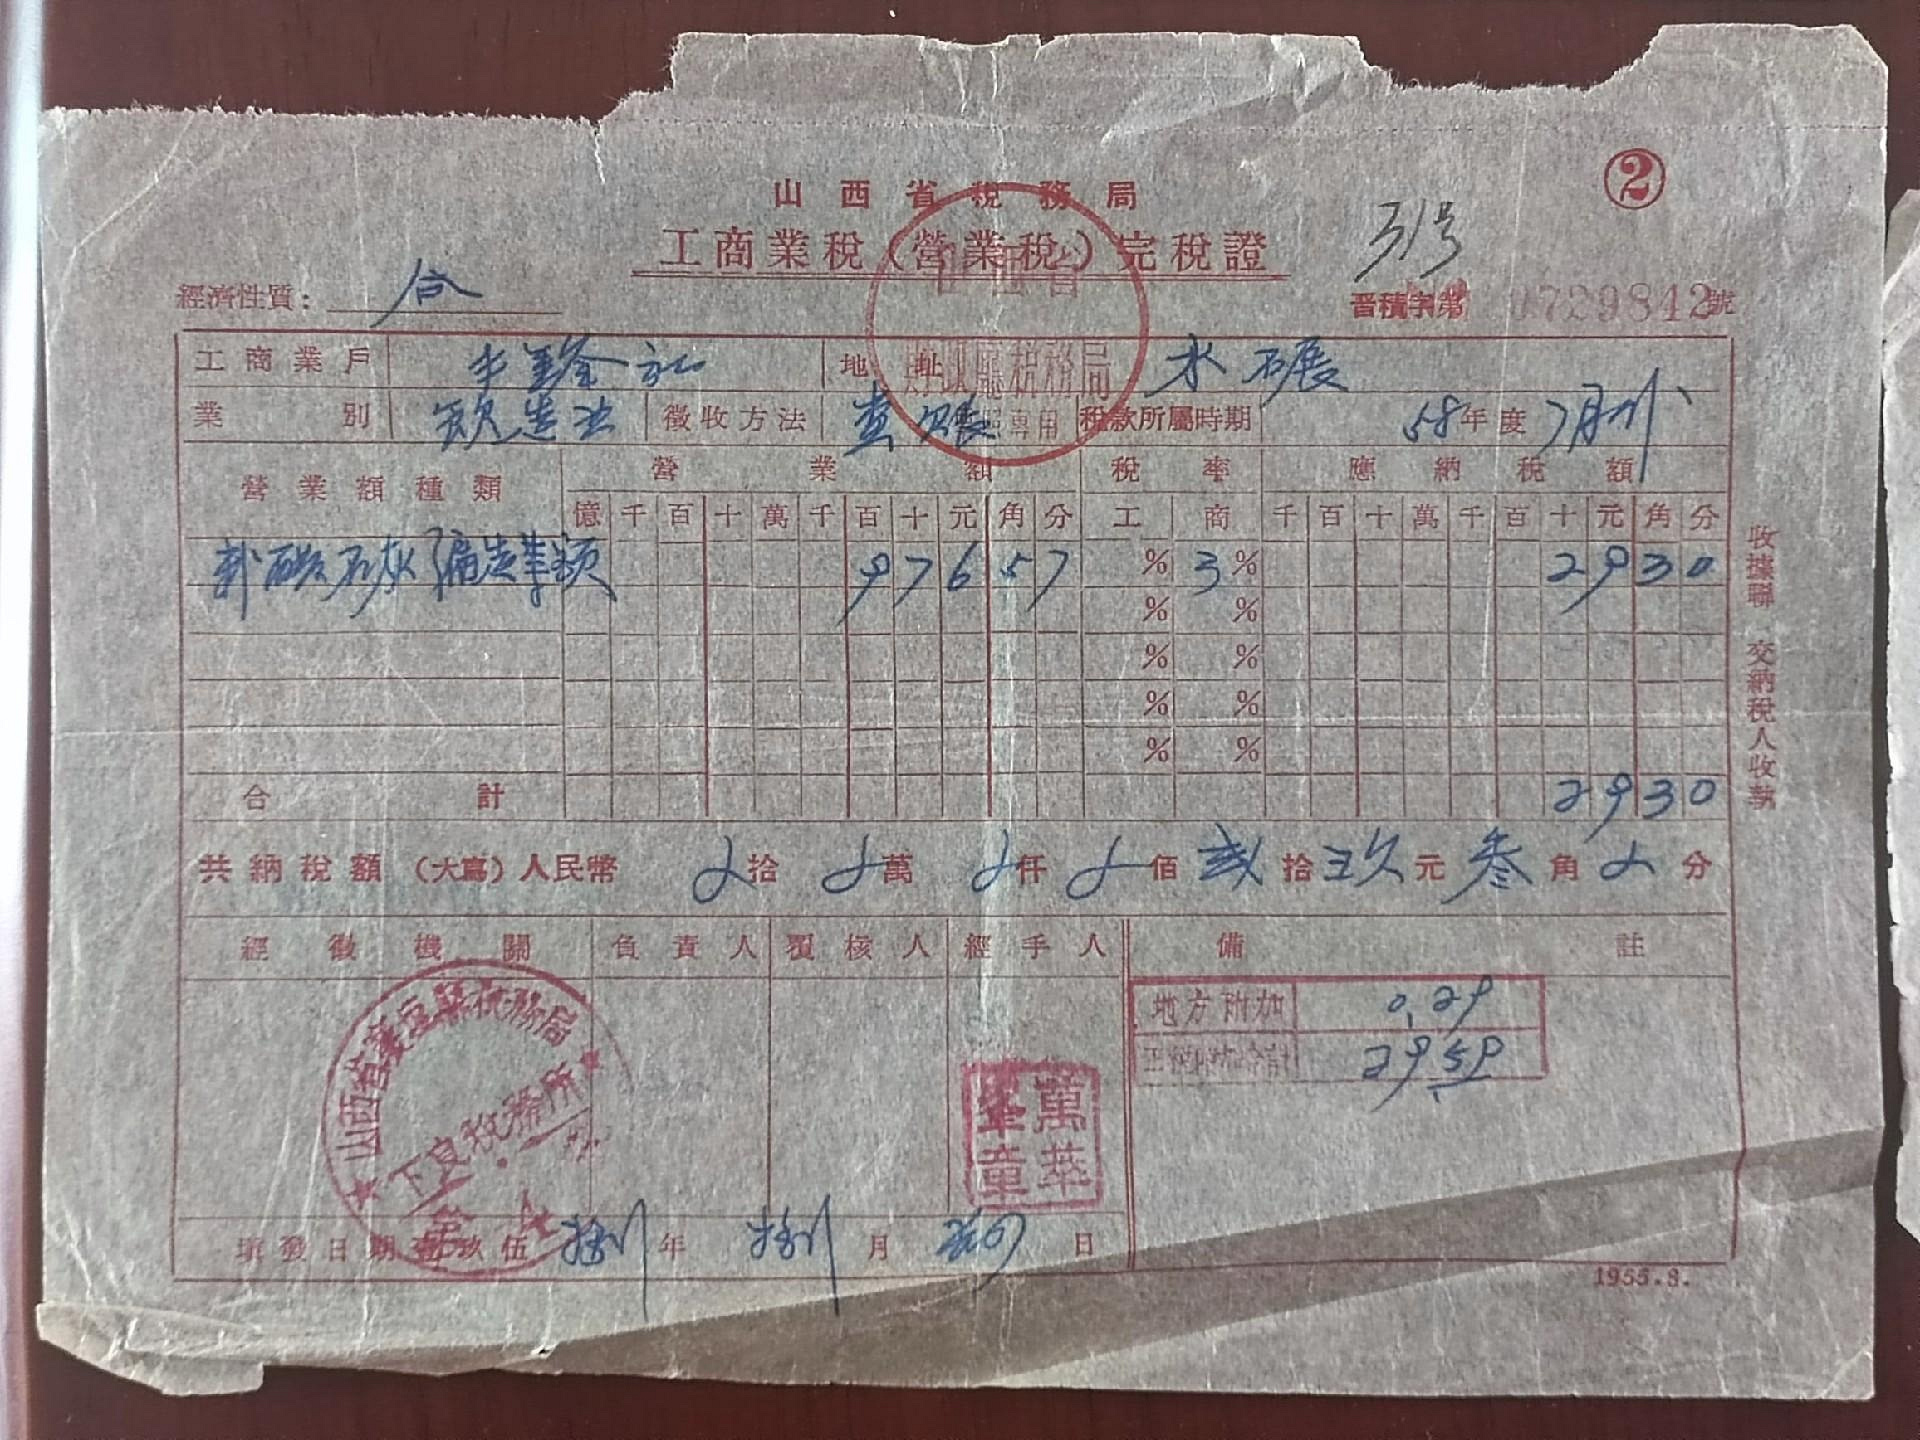 ②
山西省稅務局
工商業稅（營業稅）完稅證
31号
經濟性質： 合
晋積字第 0729842號
工商業戶 社 地址 水碾
業別 徵收方法 查账 稅款所屬時期 58年度7月
山西省
財政廳稅務局
專用
營業額種類 營業額 稅率 應納稅額
億千百十萬千百十元角分 工 商 千百十萬千百十元角分
石灰 976 57 % 3% 29 30
% %
% %
% %
% %
合計 29 30
共納稅額（大寫）人民幣 拾 萬 仟 佰 贰拾玖元叁角 分
經徵機關 負責人 覆核人 經手人 備註
地方附加 0.29
正稅附加合計 29.59
山西省襄垣縣稅務局
下良稅務所
萬華
章
填發日期壹玖伍捌年捌月 日
收據聯 交納稅人收執
1955.8.